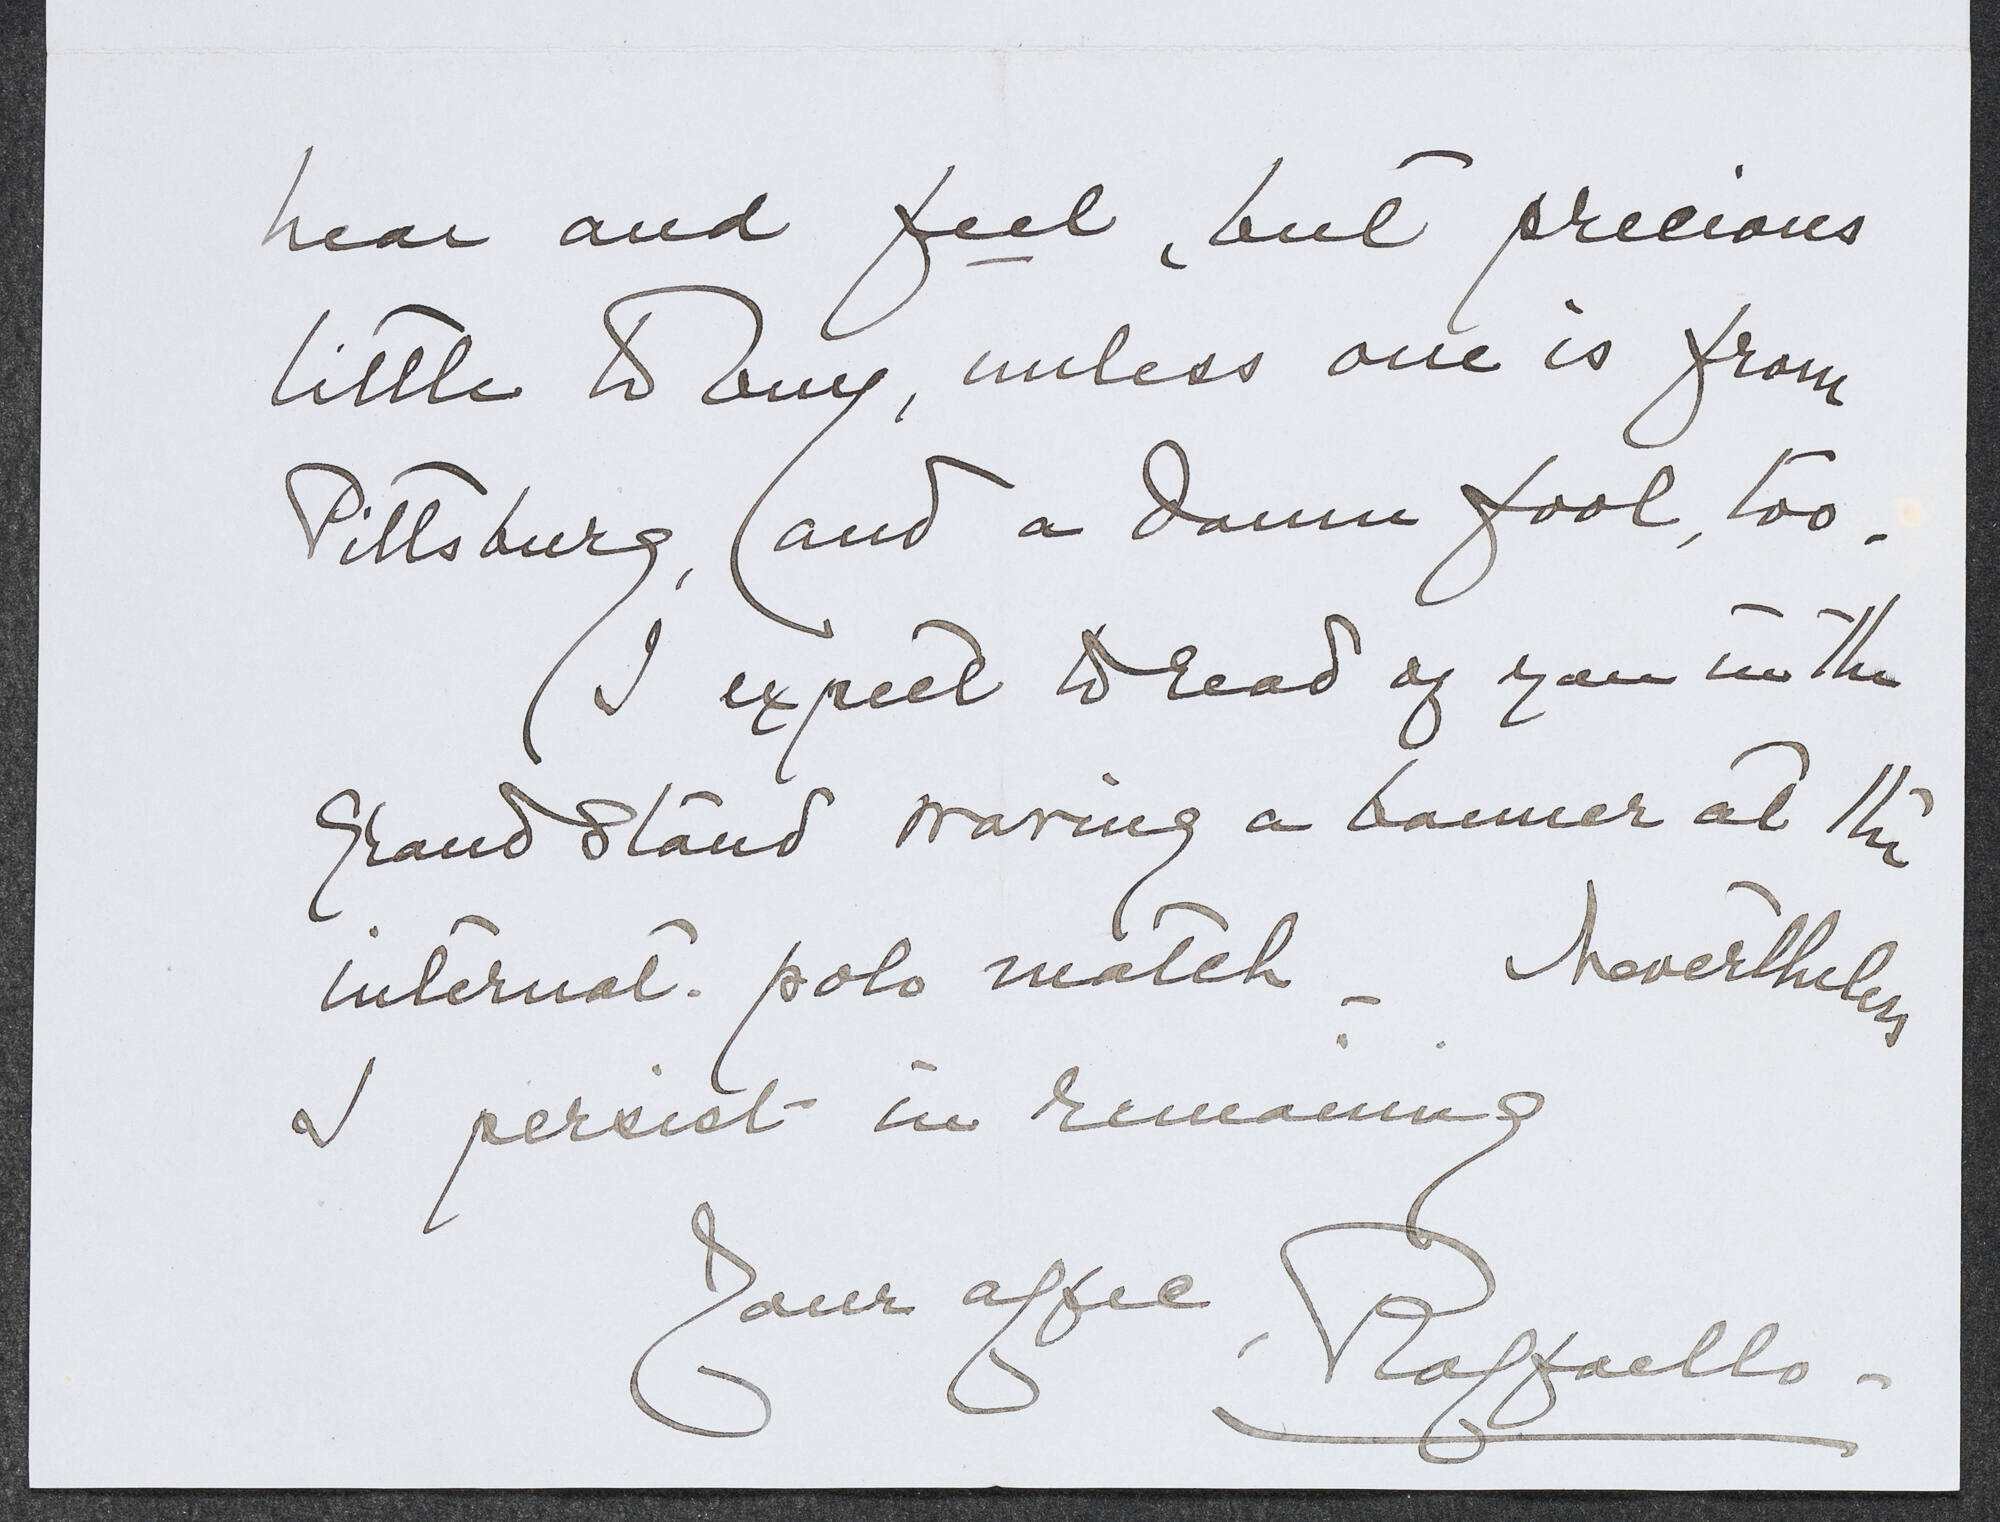 hear and feel, but precious
little to buy, unless one is from
Pittsburg, and a damn fool, too.
I expect to read of you in the
Grand Stand waving a banner at the
internat. polo match - Nevertheless
I persist in remaining
Your affec
, Raffaello -